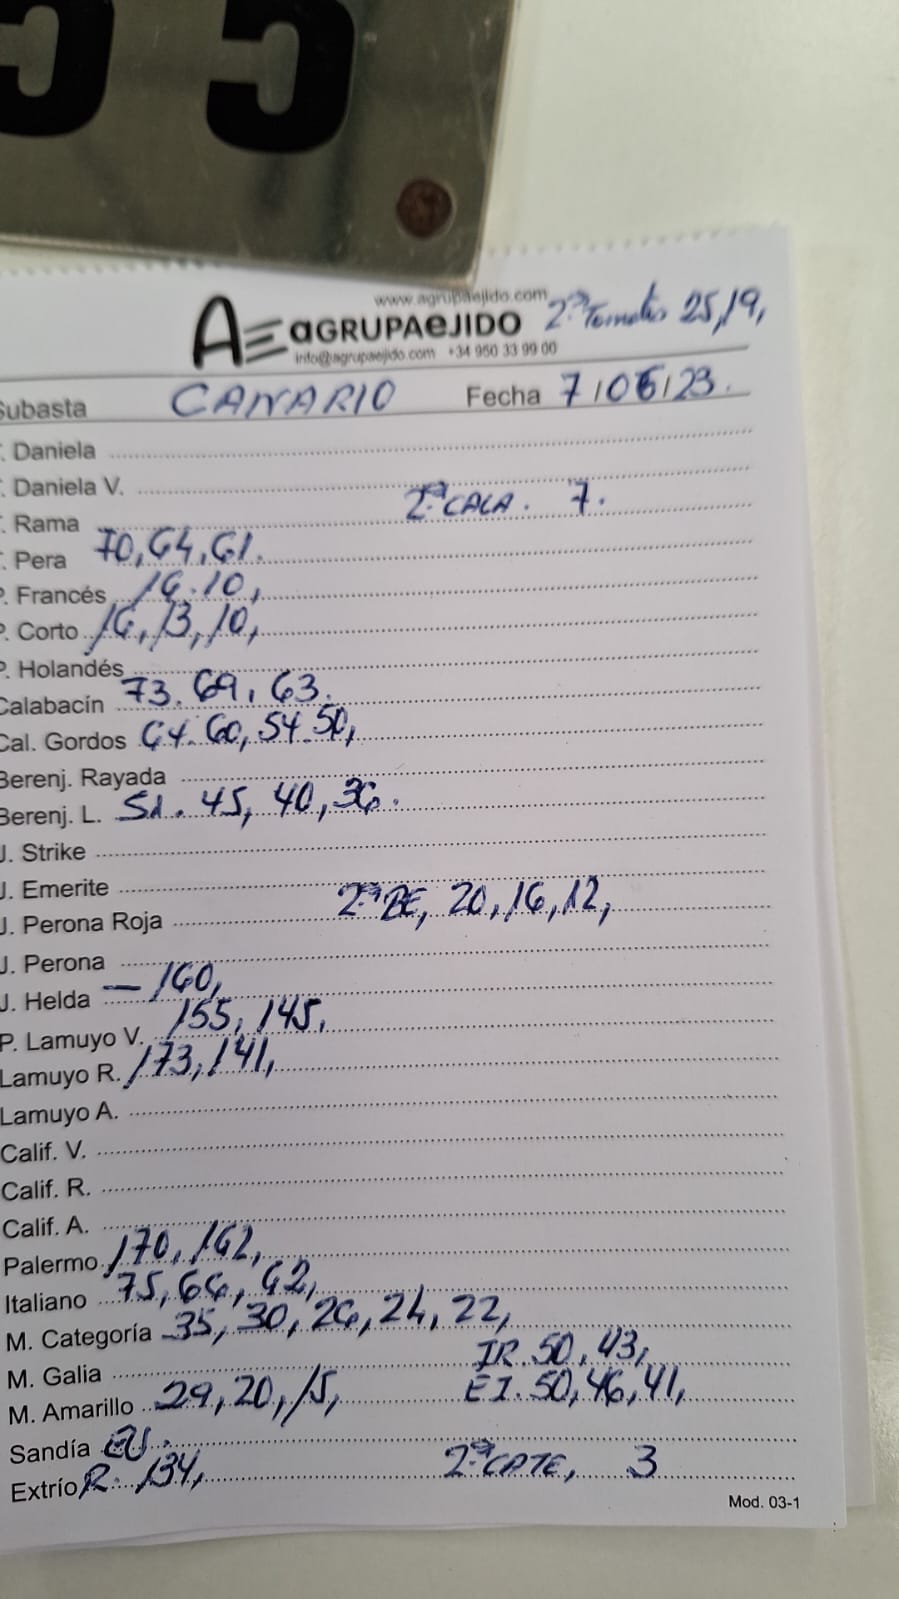 55
www.agrupaejido.com
AE aGRUPAeJIDO 2ª Tomates 25,19,
info@agrupaejido.com +34 950 33 99 00
Subasta CANARIO Fecha 7/06/23.
. Daniela
. Daniela V.
2ª CALA. 7.
. Rama
. Pera 70,64,61.
P. Francés 16.10,
P. Corto 16,13,10,
P. Holandés
Calabacín 73.69,63.
Cal. Gordos 64.60,54.50,
Berenj. Rayada
Berenj. L. 51.45,40,36.
J. Strike
J. Emerite
2ª BE, 20,16,12,
J. Perona Roja
J. Perona
J. Helda — 160,
P. Lamuyo V. 155,145.
Lamuyo R. 173,141,
Lamuyo A.
Calif. V.
Calif. R.
Calif. A.
Palermo 170,162,
Italiano 75,66,62,
M. Categoría 35,30,26,24,22,
M. Galia IR.50,43,
M. Amarillo 29,20,15, EJ.50,46,41,
Sandía
Extrío R. 134, 2ª CATE, 3
Mod. 03-1